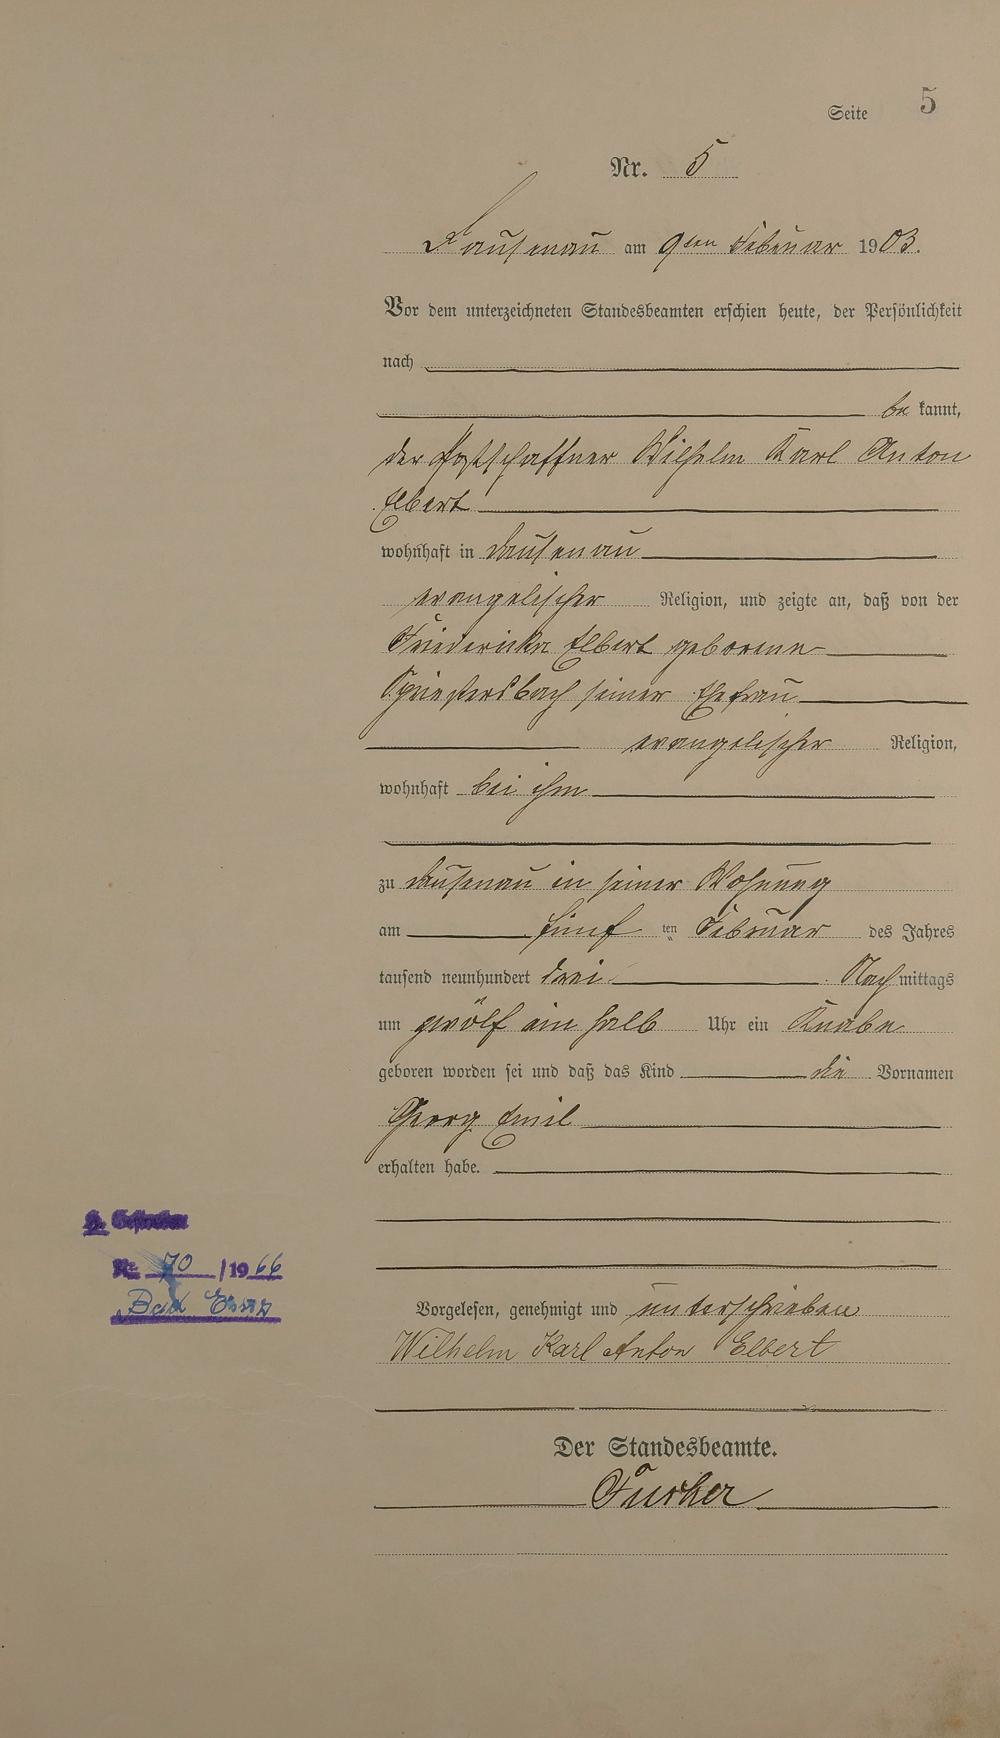 Seite 5
Nr. 5
Dausenau am 9ten Februar 1903.
Vor dem unterzeichneten Standesbeamten erschien heute, der Persönlichkeit
nach
be kannt,
der Postschaffner Wilhelm Karl Anton
Elbert
wohnhaft in Dausenau
evangelischer Religion, und zeigte an, daß von der
Friedericka Elbert geborene
Spriestersbach seiner Ehefrau
evangelischer Religion,
wohnhaft bei ihm
zu Dausenau in seiner Wohnung
am fünf ten Februar des Jahres
tausend neunhundert drei Nach mittags
um zwölf ein halb Uhr ein Knabe
geboren worden sei und daß das Kind die Vornamen
Georg Emil
erhalten habe.
Gestorben
Nr. 70 /1966
Bad Ems
Vorgelesen, genehmigt und unterschrieben
Wilhelm Karl Anton Elbert
Der Standesbeamte.